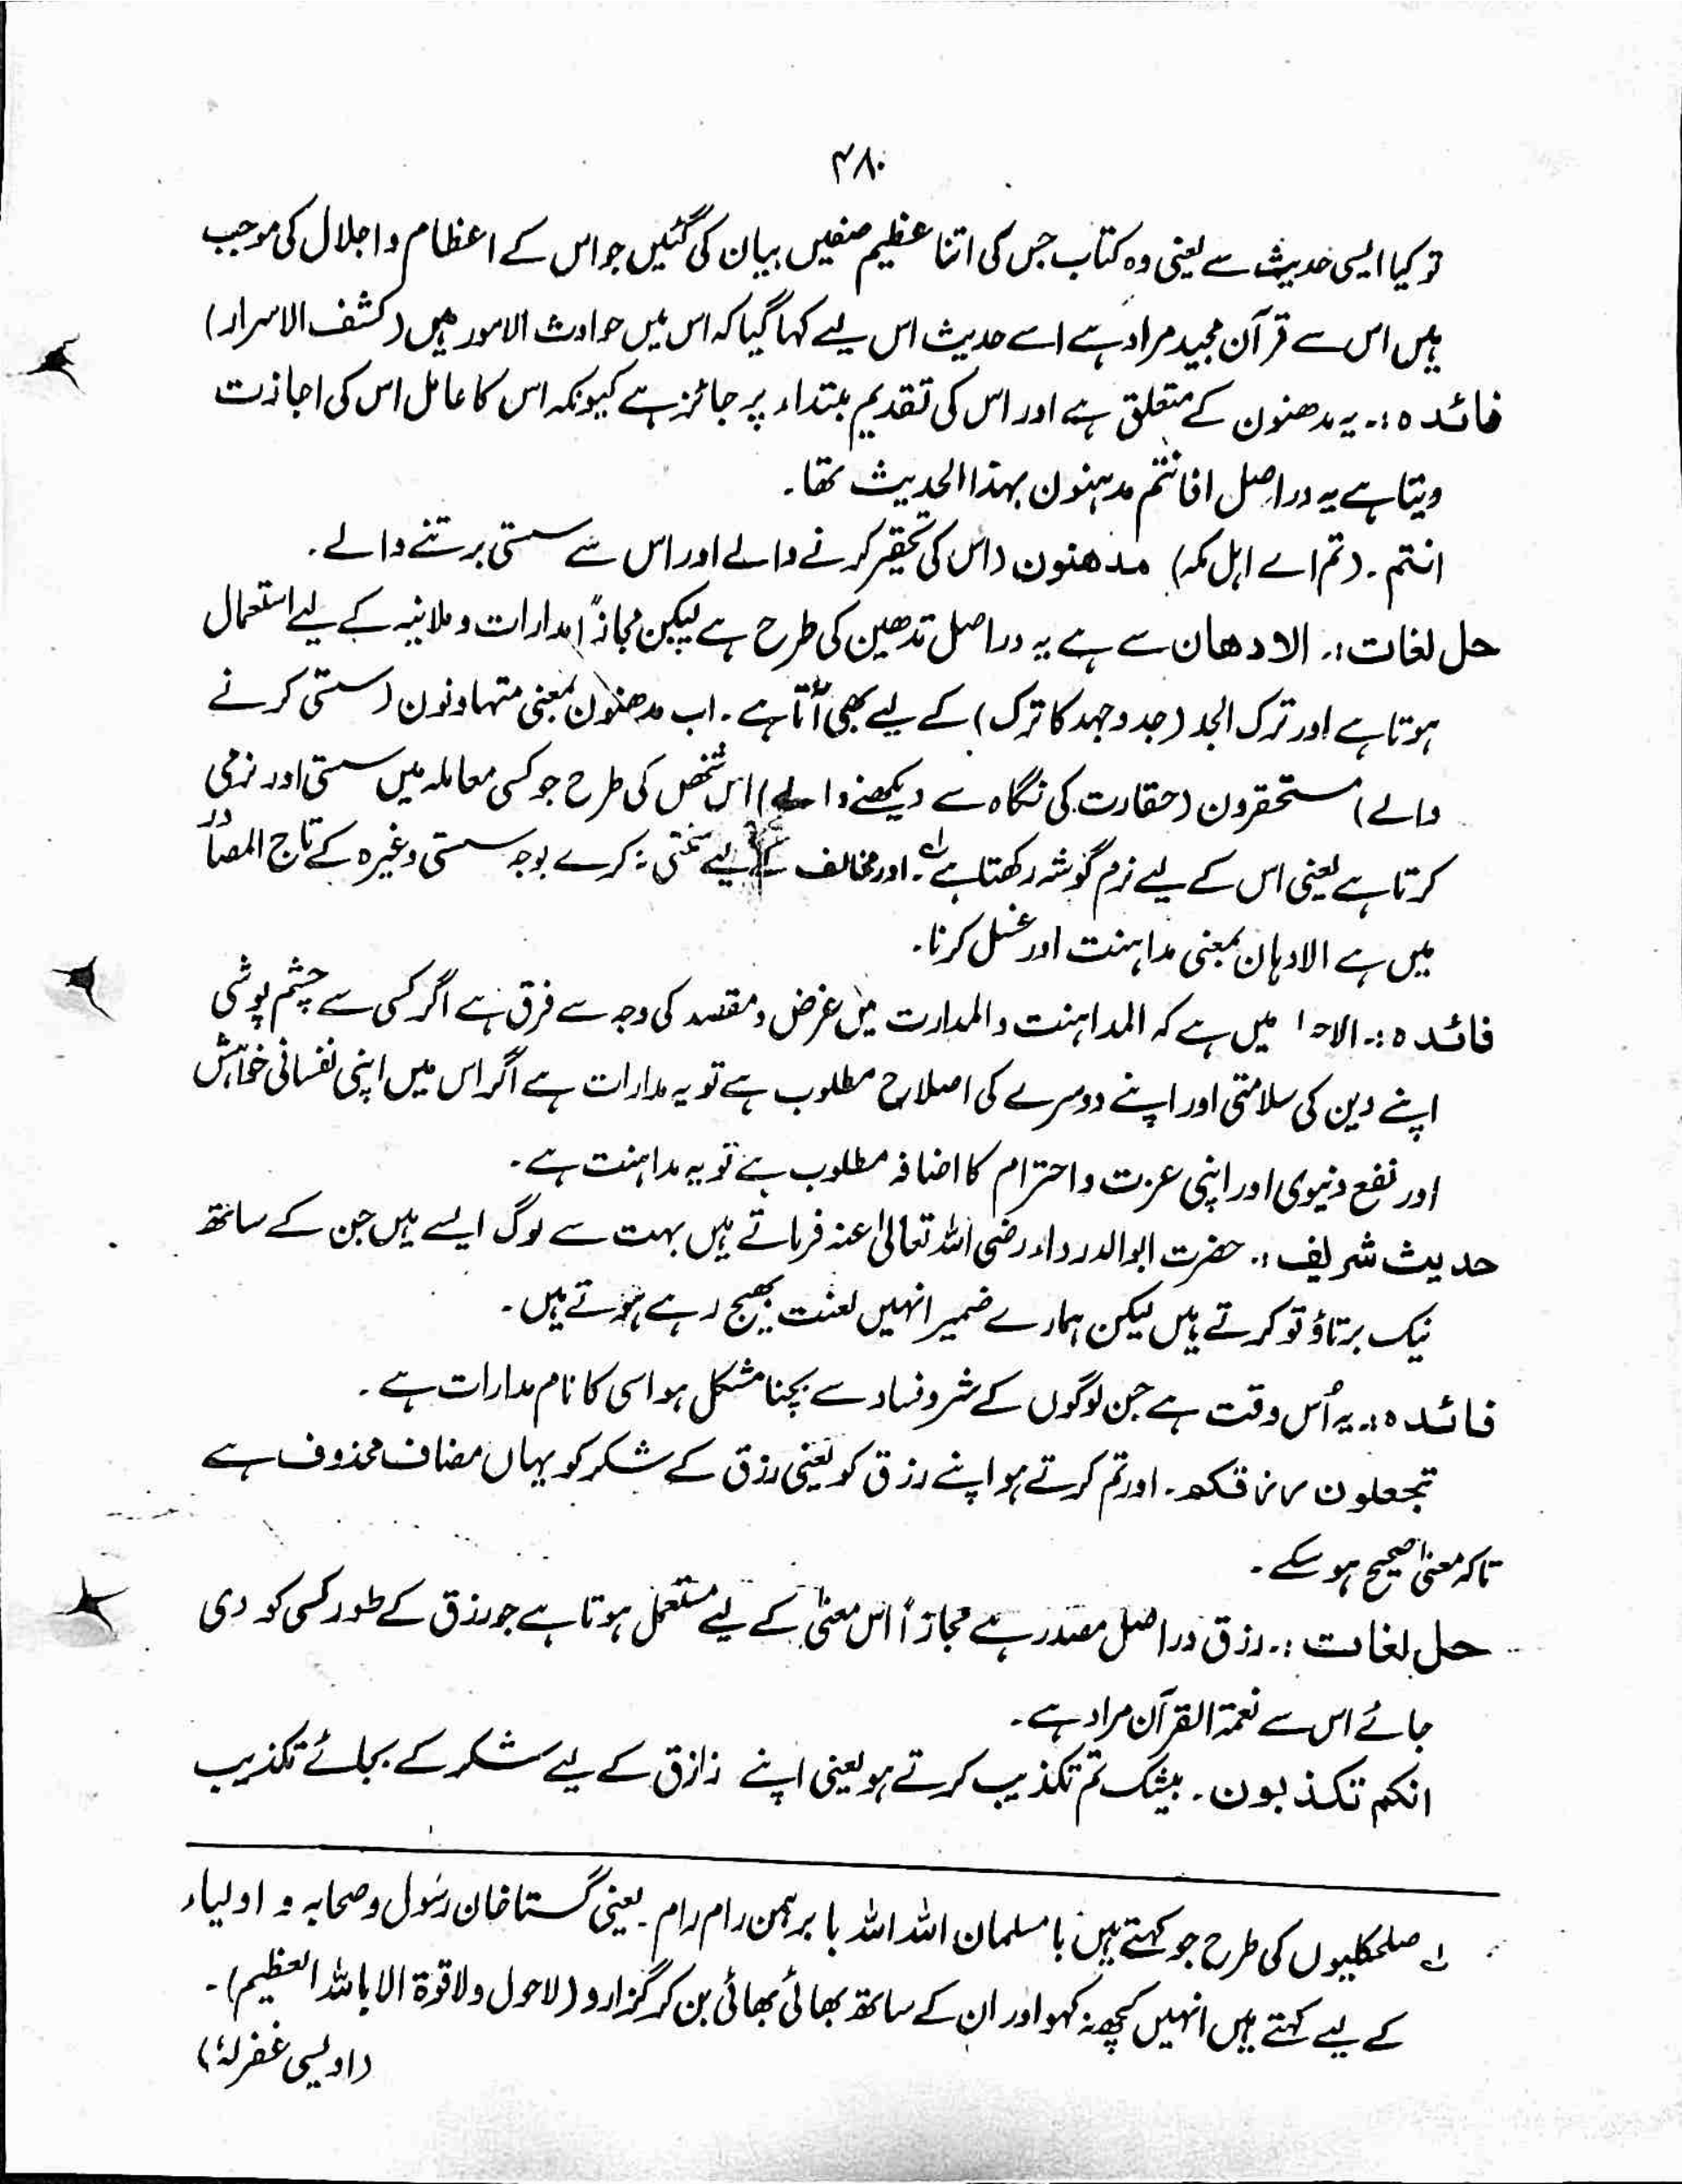 ۴۸۰
تو کیا ایسی حدیث سے یعنی وہ کتاب جس کی اتنا عظیم صفیں بیان کی گئیں جو اس کے اعظام و اجلال کی موجب
ہیں اس سے قرآن مجید مراد ہے اسے حدیث اس لیے کہا گیا کہ اس میں حوادث الامور ہیں (کشف الاسرار)
فائدہ :۔ یہ مدھنون کے متعلق ہے اور اس کی تقدیم مبتداء پر جائز ہے کیونکہ اس کا عامل اس کی اجازت
دیتا ہے یہ دراصل افانتم مدہنون بہذا الحدیث تھا۔
انتم ۔ (تم اے اہل مکہ) مدھنون (اس کی تحقیر کرنے والے اور اس سے سستی برتنے والے ۔
حل لغات :۔ الادھان سے ہے یہ دراصل تدھین کی طرح ہے لیکن مجازاً مدارات و ملانیہ کے لیے استعمال
ہوتا ہے اور ترک الجد (جدوجہد کا ترک) کے لیے بھی آتا ہے ۔ اب مدھنون بمعنی متہاونون (سستی کرنے
والے) مستحقرون (حقارت کی نگاہ سے دیکھنے والے) اس شخص کی طرح جو کسی معاملہ میں سستی اور نرمی
کرتا ہے یعنی اس کے لیے نرم گوشہ رکھتا ہے ۱؎ ۔ اور مخالف کے لیے سختی نہ کرے بوجہ سستی وغیرہ کے تاج المصادر
میں ہے الادہان بمعنی مداہنت اور غسل کرنا ۔
فائدہ :۔ الاحیا میں ہے کہ المداہنت والمدارت میں غرض و مقصد کی وجہ سے فرق ہے اگر کسی سے چشم پوشی
اپنے دین کی سلامتی اور اپنے دوسرے کی اصلاح مطلوب ہے تو یہ مدارات ہے اگر اس میں اپنی نفسانی خواہش
اور نفع دنیوی اور اپنی عزت و احترام کا اضافہ مطلوب ہے تو یہ مداہنت ہے ۔
حدیث شریف :۔ حضرت ابوالدرداء رضی اللہ تعالیٰ عنہ فرماتے ہیں بہت سے لوگ ایسے ہیں جن کے ساتھ
نیک برتاؤ تو کرتے ہیں لیکن ہمارے ضمیر انہیں لعنت بھیج رہے ہوتے ہیں ۔
فائدہ :۔ یہ اُس وقت ہے جن لوگوں کے شر و فساد سے بچنا مشکل ہو اسی کا نام مدارات ہے ۔
تجعلون رزقکم ۔ اور تم کرتے ہو اپنے رزق کو یعنی رزق کے شکر کو یہاں مضاف محذوف ہے
تاکہ معنیٰ صحیح ہو سکے ۔
حل لغات :۔ رزق دراصل مصدر ہے مجازاً اس معنیٰ کے لیے مستعمل ہوتا ہے جو رزق کے طور کسی کو دی
جائے اس سے نعمۃ القرآن مراد ہے ۔
انکم تکذبون ۔ بیشک تم تکذیب کرتے ہو یعنی اپنے رازق کے لیے شکر کے بجائے تکذیب
۱؎ صلحکلیوں کی طرح جو کہتے ہیں با مسلمان اللہ اللہ با برہمن رام رام ۔ یعنی گستاخان رسول و صحابہ و اولیاء
کے لیے کہتے ہیں انہیں کچھ نہ کہو اور ان کے ساتھ بھائی بھائی بن کر گزارو (لاحول ولا قوۃ الا باللہ العظیم) ۔
(اویسی غفرلہٗ)